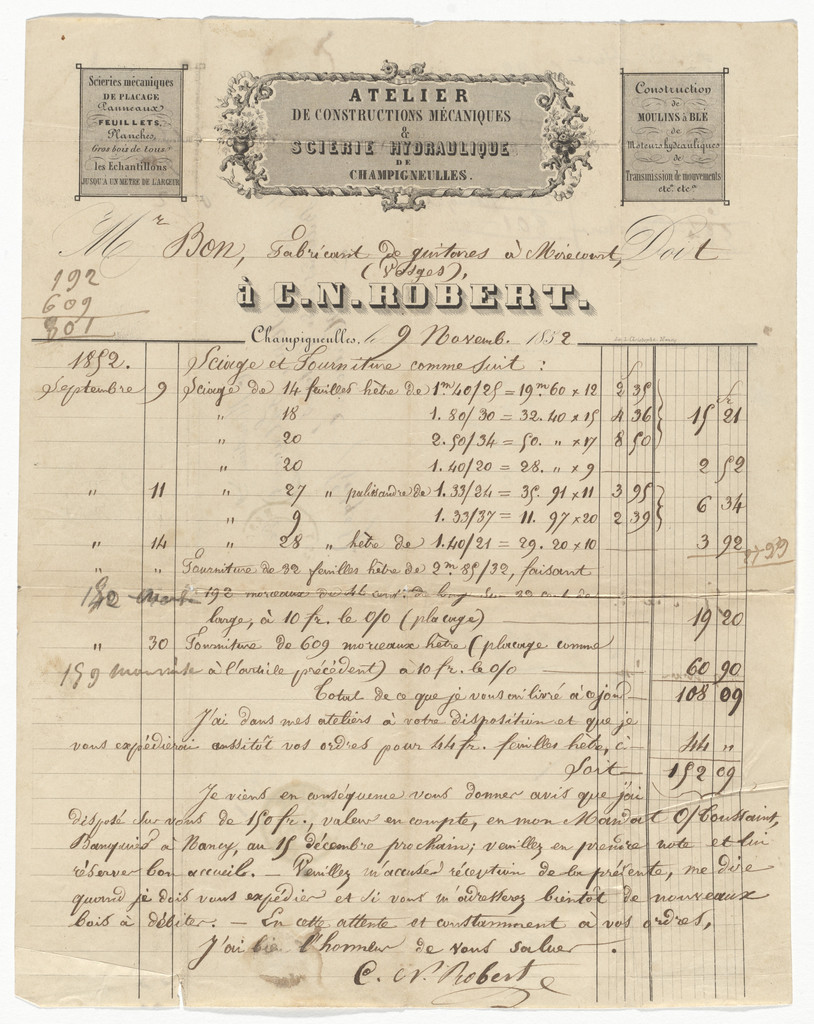 Scieries mécaniques
DE PLACAGE
Panneaux
FEUILLETS,
Planches,
Gros bois de tous
les Echantillons
JUSQU'A UN METRE DE LARGEUR
ATELIER
DE CONSTRUCTIONS MÉCANIQUES
&
SCIERIE HYDRAULIQUE
DE
CHAMPIGNEULLES.
Construction
de
MOULINS à BLÉ
de
Moteurs hydrauliques
de
Transmission de mouvements
etc. etc.
Mr Bon, Fabricant de guitares à Mirecourt, Doit
(Vosges),
192
609
801
à C.N. ROBERT.
Champigneulles, le 9 Novemb. 1852
1852. Sciage et Fourniture comme suit :
Septembre 9 Sciage de 14 feuilles hêtre de 1m 40/25 = 19m 60 x 12 2 35
" 18 1. 80/30 = 32. 40 x 15 4 36 15 21
" 20 2. 50/34 = 50. " x 17 8 50
" 20 1. 40/20 = 28. " x 9 2 52
" 11 " 27 " palissandre de 1. 33/24 = 35. 91 x 11 3 95 6 34
" 9 1. 33/37 = 11. 97 x 20 2 39
" 14 " 28 " hêtre de 1. 40/21 = 29. 20 x 10 3 92
" " Fourniture de 32 feuilles hêtre de 2m 85/32, faisant
192 morceaux de 44 cent. de long sur 22 cent. de
large, à 10 fr. le 0/0 (placage) 19 20
" 30 Fourniture de 609 morceaux hêtre (placage comme
à l'article précédent) à 10 fr. le 0/0 60 90
Total de ce que je vous ai livré à ce jour 108 09
J'ai dans mes ateliers à votre disposition et que je
vous expédierai aussitôt vos ordres pour 44 fr. feuilles hêtre, ci 44 "
Soit 152 09
Je viens en conséquence vous donner avis que j'ai
disposé sur vous de 150 fr., valeur en compte, en mon Mandat O/Toussaint,
Banquier à Nancy, au 15 décembre prochain; veuillez en prendre note et lui
réserver bon accueil. — Veuillez m'accuser réception de la présente, me dire
quand je dois vous expédier et si vous m'adresserez bientôt de nouveaux
bois à débiter. — En cette attente et constamment à vos ordres,
J'ai l'honneur de vous saluer.
C. N. Robert